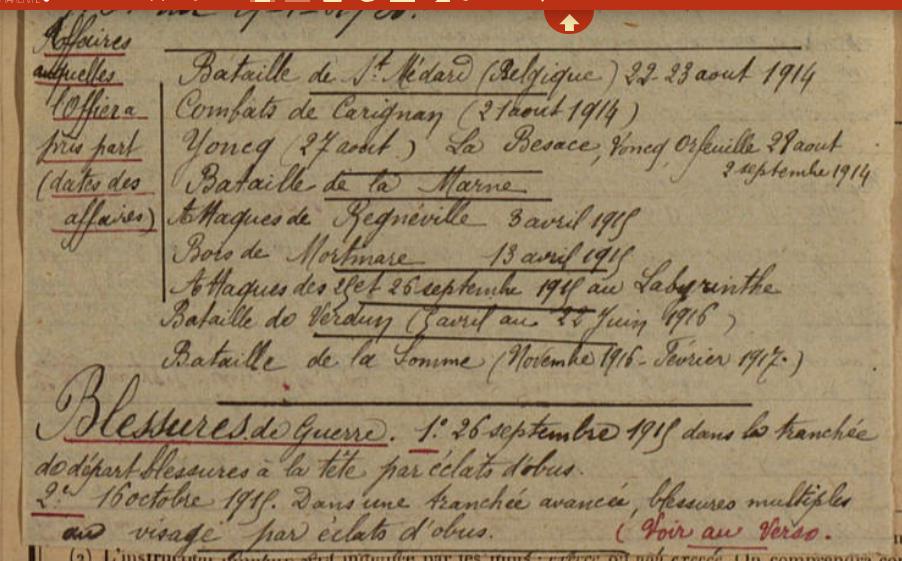 Affaires
auxquelles
l'Offier a
pris part
(dates des
affaires)
Bataille de St Médard (Belgique) 22-23 aout 1914
Combats de Carignan (21 aout 1914)
Yoncq (27 aout) La Besace, Voncq Orfeuille 28 aout
2 septembre 1914
Bataille de la Marne
Attaques de Regnéville 3 avril 1915
Bois de Mortmare 13 avril 1915
Attaques des 25 et 26 septembre 1915 au Labyrinthe
Bataille de Verdun (5 avril au 22 Juin 1916)
Bataille de la Somme (Novembre 1916 - Février 1917.)
Blessures de Guerre. 1º 26 septembre 1915 dans la tranchée
de départ blessures à la tête par éclats d'obus.
2º 16 octobre 1915. Dans une tranchée avancée, blessures multiples
au visage par éclats d'obus. (Voir au Verso.